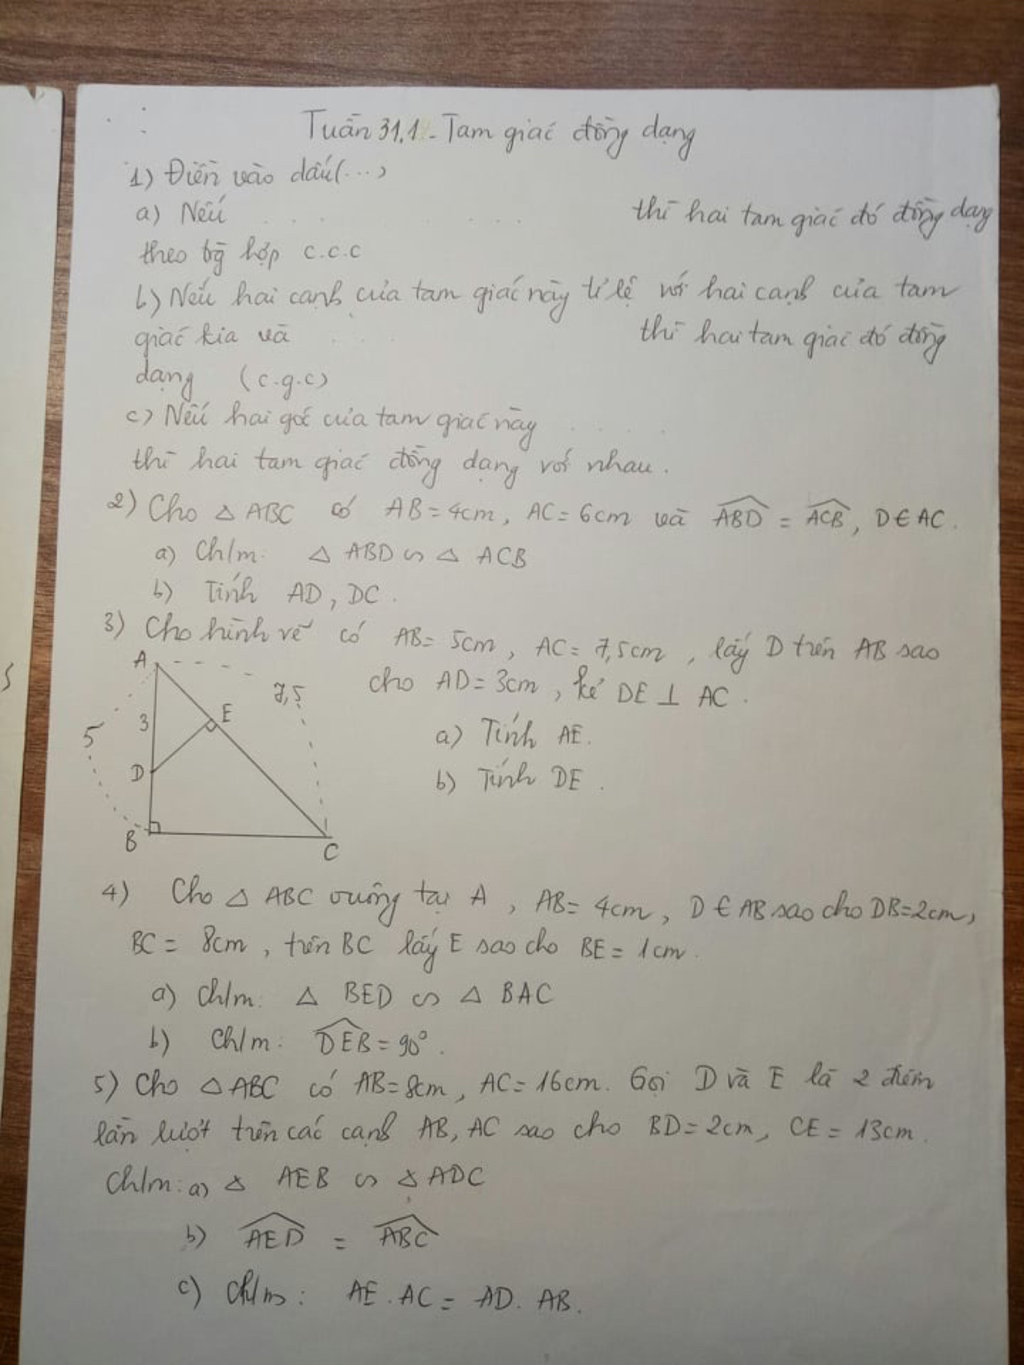 Tuần 31.1 - Tam giác đồng dạng
1) Điền vào dấu (...)
a) Nếu . . . . . . thì hai tam giác đó đồng dạng
theo tg hợp c.c.c
b) Nếu hai cạnh của tam giác này tỉ lệ với hai cạnh của tam
giác kia và . . . thì hai tam giác đó đồng
dạng (c.g.c)
c) Nếu hai góc của tam giác này . . . .
thì hai tam giác đồng dạng với nhau.
2) Cho △ ABC có AB = 4cm, AC = 6cm và \widehat{ABD} = \widehat{ACB}, D ∈ AC.
a) Ch/m: △ ABD ∽ △ ACB
b) Tính AD, DC.
3) Cho hình vẽ có AB = 5cm, AC = 7,5cm, lấy D trên AB sao
cho AD = 3cm, kẻ DE ⊥ AC.
a) Tính AE.
b) Tính DE.
A
7,5
3
E
5
D
B
C
4) Cho △ ABC vuông tại A, AB = 4cm, D ∈ AB sao cho DB = 2cm,
BC = 8cm, trên BC lấy E sao cho BE = 1cm.
a) Ch/m: △ BED ∽ △ BAC
b) Ch/m: \widehat{DEB} = 90°.
5) Cho △ABC có AB = 8cm, AC = 16cm. Gọi D và E là 2 điểm
lần lượt trên các cạnh AB, AC sao cho BD = 2cm, CE = 13cm.
Ch/m: a) △ AEB ∽ △ ADC
b) \widehat{AED} = \widehat{ABC}
c) Ch/m: AE . AC = AD . AB.